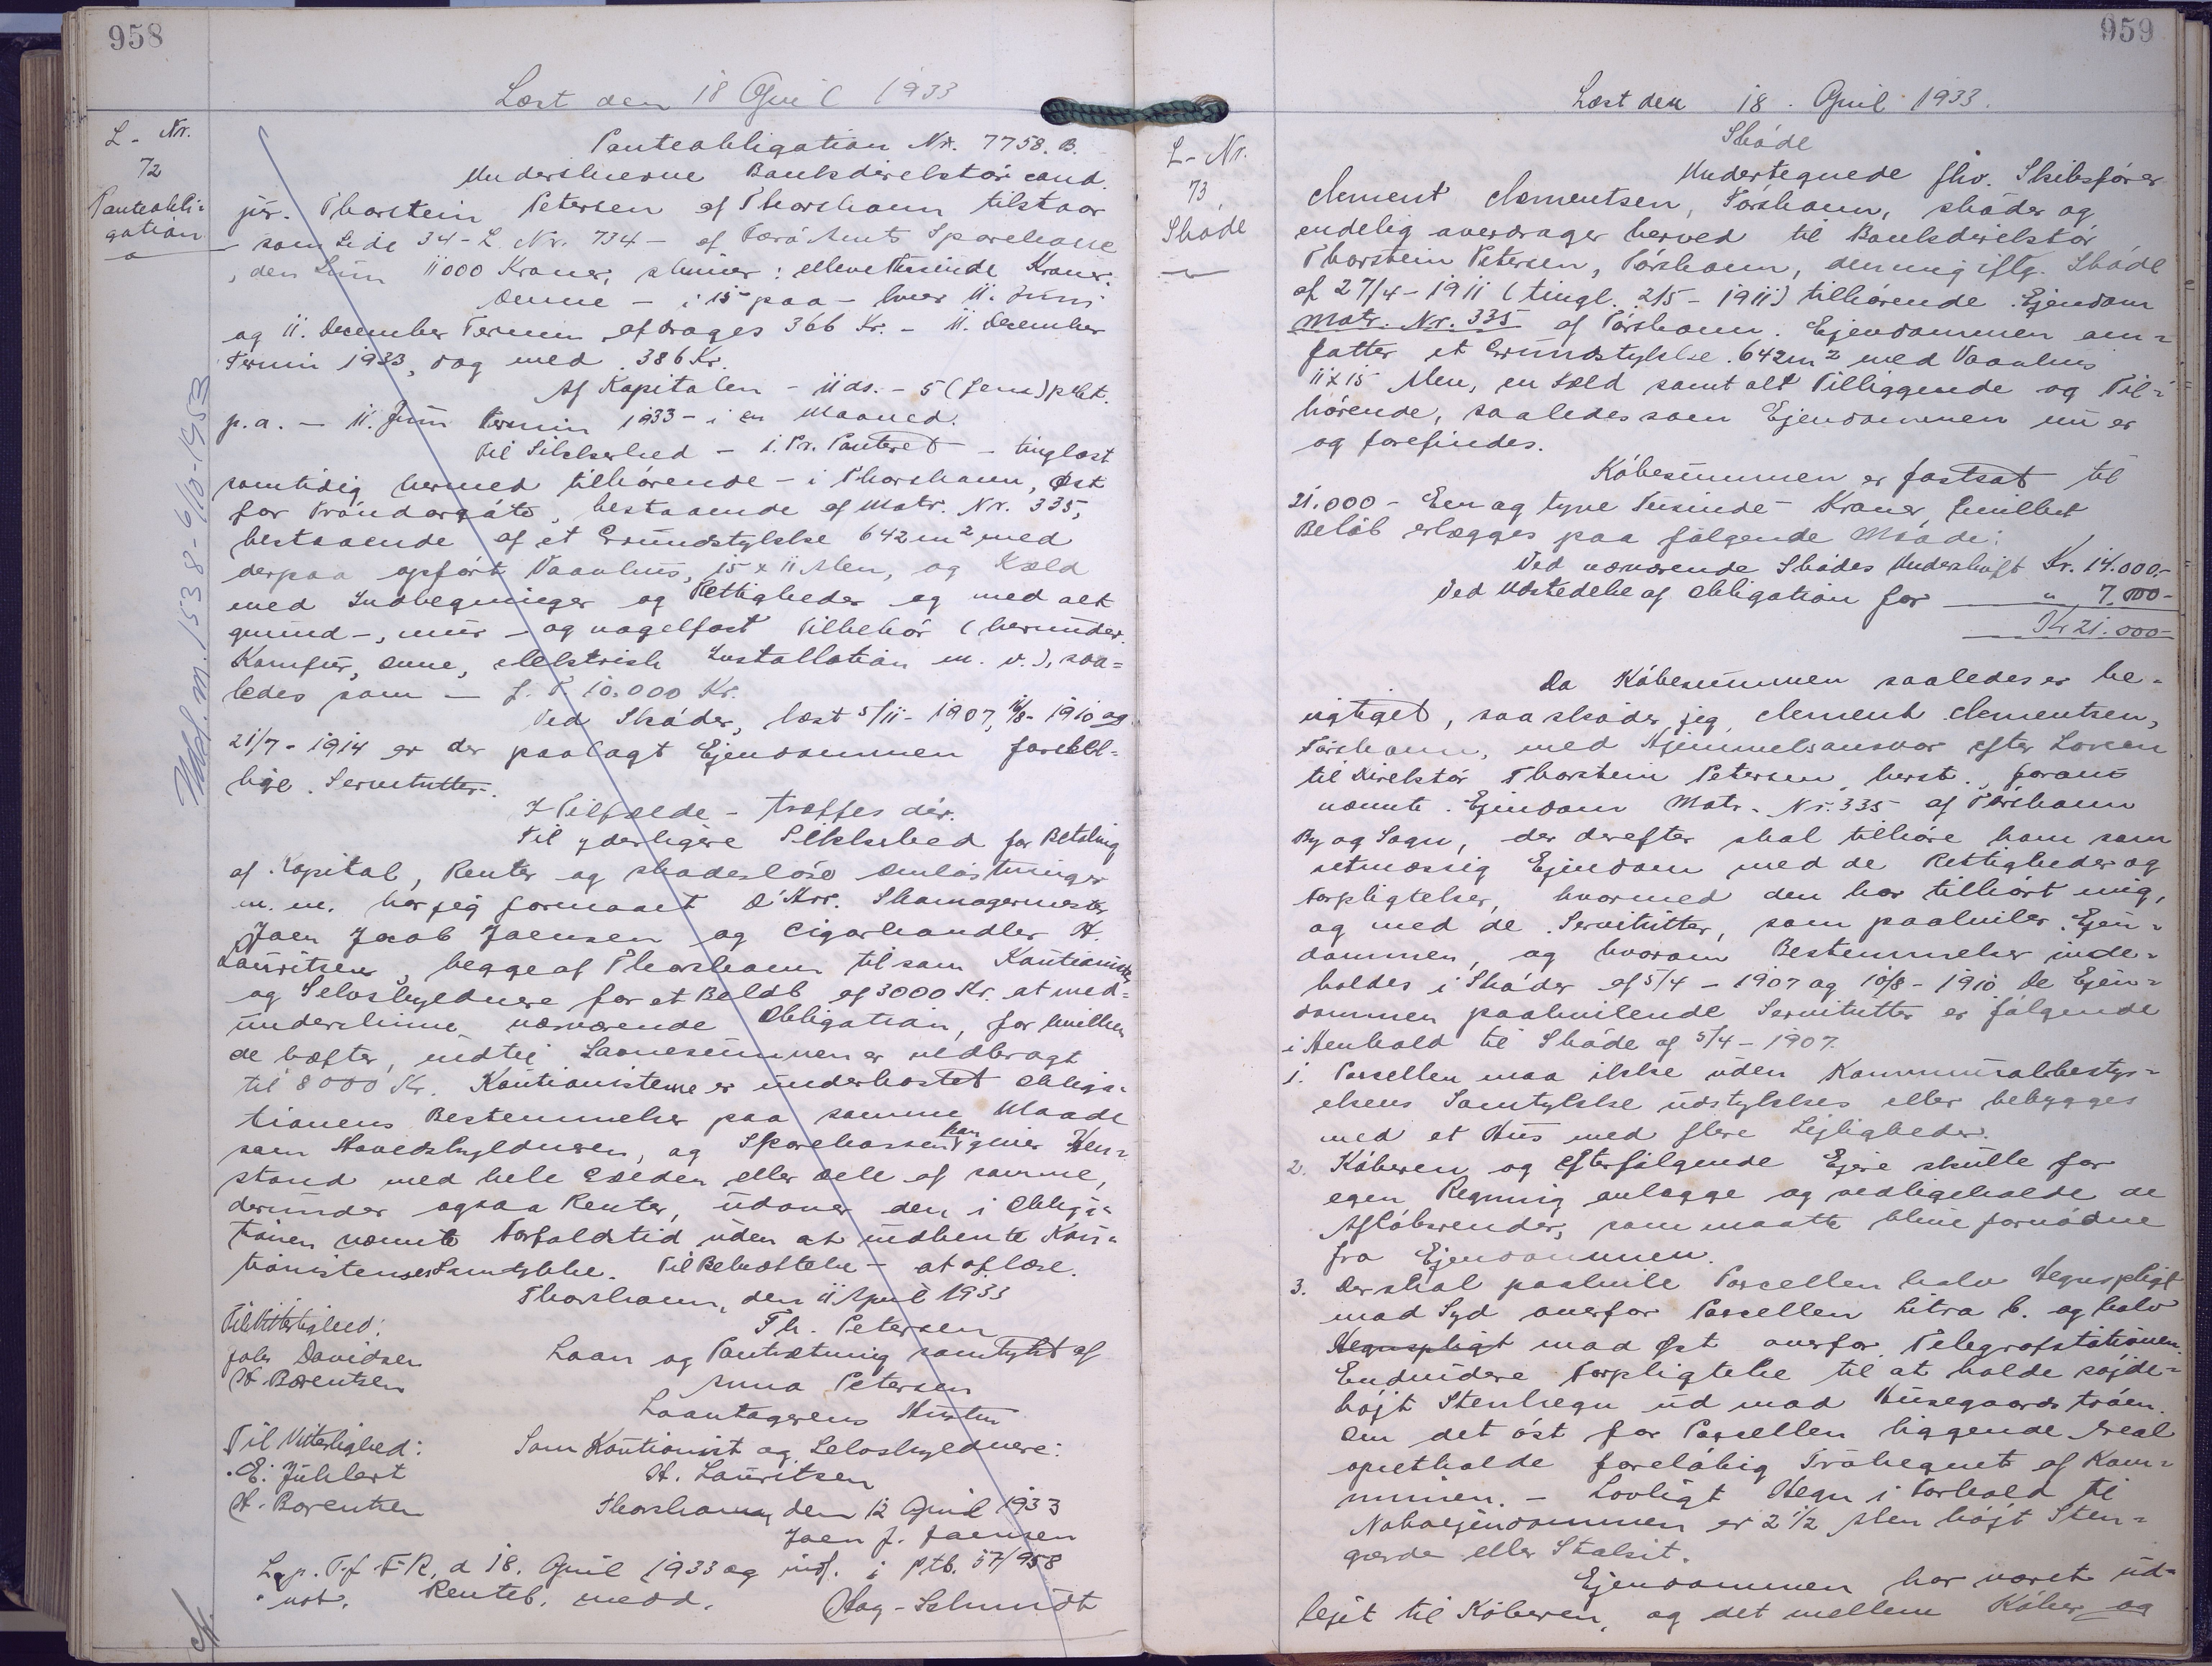 958
Læst den 18 April 1933
L - Nr.
72
Panteobli=
gation
Panteobligation Nr. 7758. B.
Underskrevne Bankdirektør cand.
jur. Thorstein Petersen af Thorshavn tilstaar
- som Side 34 - L. Nr. 734 - af Færø Amts Sparekasse
, den Sum 11000 Kroner, skriver: elleve Tusinde Kroner.
Denne - i 15 paa - hver 11. Juni
og 11. December Termin afdrages 366 Kr. - 11. December
Termin 1933, dog med 386 Kr.
Af Kapitalen - 11 ds. - 5 (fem) pCt.
p.a. - 11. Juni Termin 1933 - i en Maaned.
Til Sikkerhed - 1. Pr. Panteret - tinglæst
samtidig hermed tilhørende - i Thorshavn, Øst
for Tróndargøta, bestaaende af Matr. Nr. 335,
bestaaende af et Grundstykke 642 m² med
derpaa opført Vaanhus, 15 x 11 Alen, og Kæld
med Indhegninger og Rettigheder og med alt
grund-, mur- og nagelfast Tilbehør (herunder
Komfur, Ovne, elektrisk Installation m. v.), saa=
ledes som - f. T. 10.000 Kr.
Ved Skøder, læst 5/11 - 1907, 10/8 - 1910 og
21/7 - 1914 er der paalagt Ejendommen forskel=
lige Servitutter.
I Tilfælde - træffes dér.
Til yderligere Sikkerhed for Betaling
af Kapital, Renter og skadesløse Omkostninger
m. m. har jeg formaaet D'Hrr. Skomagermester
Joen Jacob Joensen og Cigarhandler H.
Lauritsen, begge af Thorshavn til som Kautionister
og Selvskyldnere for et Beløb af 3000 Kr. at med=
underskrive nærværende Obligation, for hvilken
de hæfter, indtil Laanesummen er nedbragt
til 8000 Kr. Kautionisterne er underkastet Obliga=
tionens Bestemmelser paa samme Maade
som Hovedskyldneren, og Sparekassen kan give Hen=
stand med hele Gælden eller Dele af samme,
derunder ogsaa Renter, udover den i Obliga=
tionen nævnte Forfaldstid uden at indhente Kau=
tionisternes Samtykke. Til Bekræftelse - at aflæse.
Thorshavn, den 11 April 1933
Til Vitterlighed: Th. Petersen
Johs Davidsen Laan og Pantsætning samtykt af
H. Børentsen Anna Petersen
Laantagerens Hustru
Til Vitterlighed: Som Kautionist og Selvskyldnere:
E. Juhlert H. Lauritsen
H. Børentsen Thorshavn, den 12 April 1933
Joen J. Joensen
L. p. T. f. F. R, d 18. April 1933 og indf. i Ptb. 57/958
not. Renteb. medd.
Udsl. m. 1538 - 6/10 - 1953
959
Læst den 18. April 1933.
L - Nr.
73
Skøde
Skøde
Undertegnede fhv. Skibsfører
Clement Clementsen, Tórshavn, skøder og
endelig overdrager herved til Bankdirektør
Thorstein Petersen, Tórshavn, den mig iflg. Skøde
af 27/4 - 1911 (tingl. 2/5 - 1911) tilhørende Ejendom
Matr. Nr. 335 af Tórshavn. Ejendommen om=
fatter et Grundstykke 642 m² med Vaanhus
11 x 15 Alen, en Kæld samt alt Tilliggende og Til=
hørende, saaledes som Ejendommen nu er
og forefindes.
Købesummen er fastsat til
21.000 - Een og tyve Tusinde - Kroner, hvilket
Beløb erlægges paa følgende Maade:
Ved nærværende Skødes Underskrift Kr. 14.000,-
Ved Udstedelse af Obligation for " 7.000-
Kr 21.000-
Da Købesummen saaledes er be=
rigtiget, saa skøder jeg, Clement Clementsen,
Tórshavn, med Hjemmelsansvar efter Loven
til Direktør Thorstein Petersen, herst., foran=
nævnte Ejendom Matr. Nr. 335 af Tórshavn
By og Sogn, der derefter skal tilhøre ham som
retmæssig Ejendom med de Rettigheder og
Forpligtelser, hvormed den har tilhørt mig,
og med de Servitutter, som paahviler Ejen=
dommen, og hvorom Bestemmelser inde=
holdes i Skøder af 5/4 - 1907 og 10/8 - 1910 De Ejen=
dommen paahvilende Servitutter er følgende
i Henhold til Skøde af 5/4 - 1907.
1. Parcellen maa ikke uden Kommunalbestyr=
elsens Samtykke udstykkes eller bebygges
med et Hus med flere Lejligheder.
2. Køberen og efterfølgende Ejere skulle for
egen Regning anlægge og vedligeholde de
Afløbsrender, som maatte blive fornødne
fra Ejendommen.
3. Der skal paahvile Parcellen halv Hegnspligt
mod Syd overfor Parcellen Litra b. og halv
Hegnspligt mod Øst overfor Telegrafstationen.
Endvidere Forpligtelse til at holde
højt Stenhegn ud mod Husegaards tróen.
Om det øst for Parcellen liggende Areal
opretholde foreløbig Træhegnet af Kom=
munen. - Lovligt Hegn i Forhold til
Naboejendommen er 2 1/2 Alen højt Sten=
gærde eller Stakit.
Ejendommen har været ud=
lejet til Køberen, og det mellem Køber og